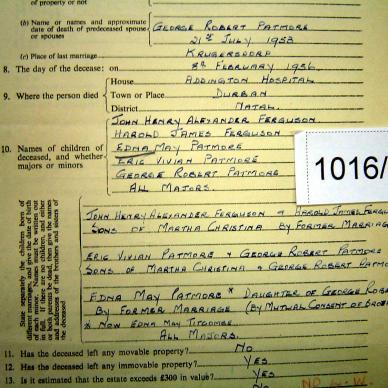 of property or not
(b) Name or names and approximate date of death of predeceased spouse or spouses
GEORGE ROBERT PATMORE
21st JULY 1953
(c) Place of last marriage
KRUGERSDORP
8. The day of the decease: on 8th FEBRUARY 1956.
9. Where the person died
House ADDINGTON HOSPITAL
Town or Place DURBAN
District NATAL.
10. Names of children of deceased, and whether majors or minors
JOHN HENRY ALEXANDER FERGUSON
HAROLD JAMES FERGUSON
EDNA MAY PATMORE
ERIC VIVIAN PATMORE
GEORGE ROBERT PATMORE
ALL MAJORS.
1016/
State separately the children born of different marriages, and give the date of birth of each minor. Names must be written out in full. If there are no children, and either or both parents be dead, then give the names and addresses of the brothers and sisters of the deceased
JOHN HENRY ALEXANDER FERGUSON & HAROLD JAMES FERGU
SONS OF MARTHA CHRISTINA BY FORMER MARRIAGE
ERIC VIVIAN PATMORE & GEORGE ROBERT PATMORE
SONS OF MARTHA CHRISTINA & GEORGE ROBERT PATMO
EDNA MAY PATMORE * DAUGHTER OF GEORGE ROBE
BY FORMER MARRIAGE (BY MUTUAL CONSENT OF BROTH
* NOW EDNA MAY TITCOMBE.
ALL MAJORS.
11. Has the deceased left any movable property? NO
12. Has the deceased left any immovable property? YES
13. Is it estimated that the estate exceeds £300 in value? YES
NO